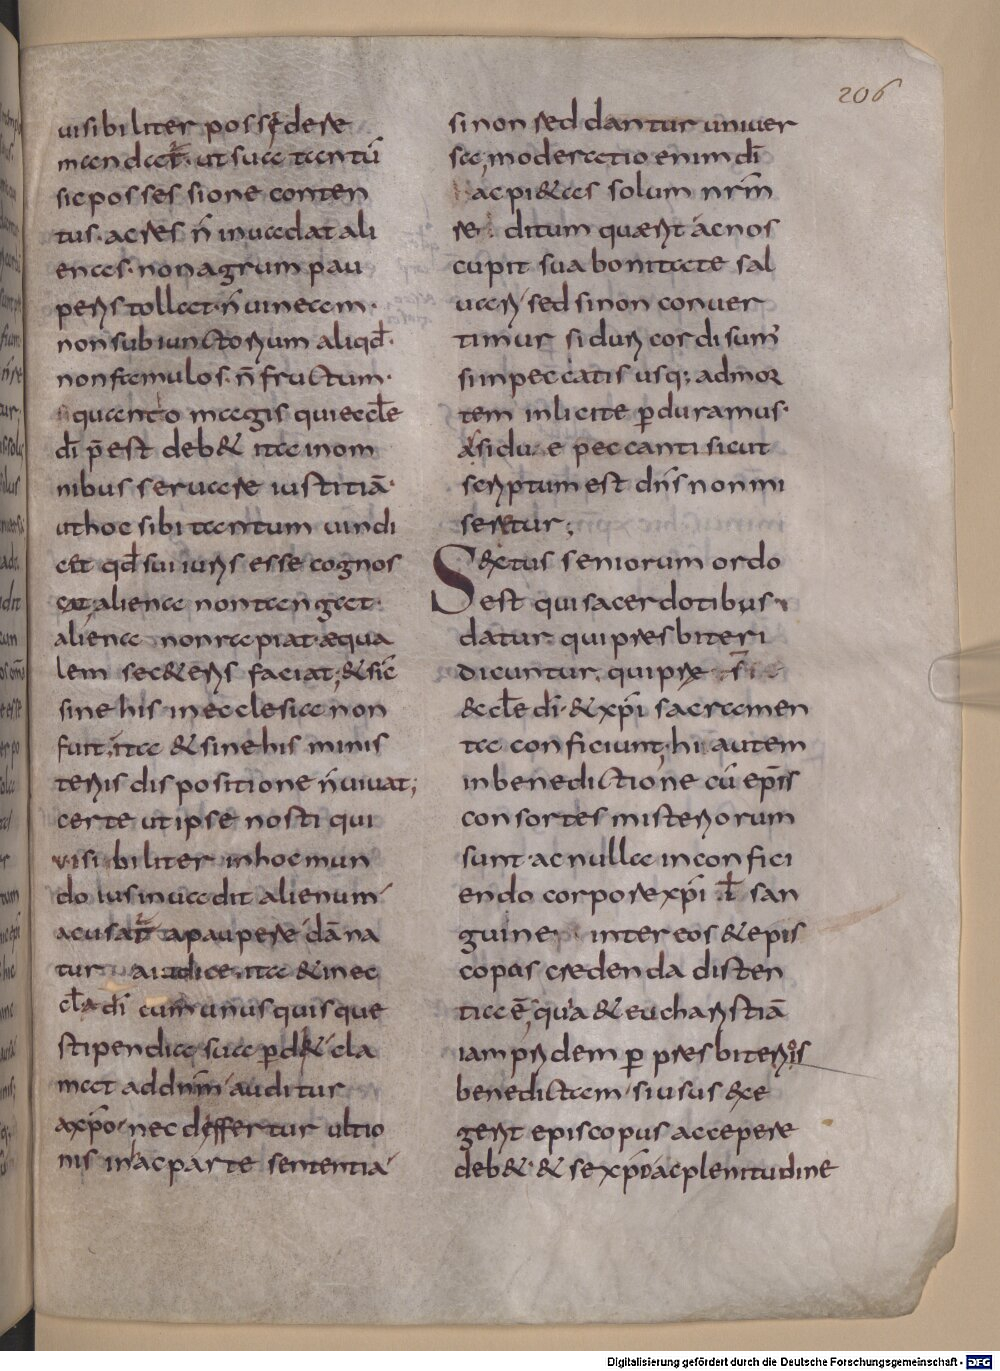 206
uisibiliter possedere
mandat͛· ut sua tantū
sic possessione conten
tus· ac res n̄ inuadat ali
enas· non agrum pau
peris tollat· n̄ uineam·
non subiunctorum aliqđ·
non famulos· n̄ fructum·
quanto magis qui eccłe
dī p̄est deb& ita in om
nibus seruare iustitiā·
ut hoc sibi tantum uindi
cet qđ sui iuris esse cognos
cat, aliena non tangat·
aliena non rapiat æqua
lem se c&eris faciat, & sic̄
sine his in ecclesia non
fuit, ita & sine his minis
teriis dispositione n̄ uiuat;
certe ut ipse nosti qui
uisibiliter in hoc mun
do ius inuadit alienum
acusat͛ a paupere dāna
tur a iudice, ita & in ec
cła dī cum unusquisque
stipendia sua perd& cla
mat ad dn̄m auditur
a xp̄o· nec deffertur ultio
nis in ac parte sententia
si non sed dantur uniuer
sa, moderatio enim dī
ac pi&as solum nr̄m
reditum quærit ac nos
cupit sua bonitate sal
uari sed si non conuer
timur si duri cordi sum̄
si in peccatis usq; ad mor
tem inlicite ꝑduramus·
asidue peccanti sicut
scriptum est dn̄s non mi
seretur;
Sextus seniorum ordo
est qui sacerdotibus·
datur· qui presbiteri
dicuntur, qui præ
& eccłe dī· & xp̄i sacramen
ta conficiunt, hi autem
in benedictione cū ep̄is
consortes misteriorum
sunt· ac nulla in confici
endo corpore xp̄i ł san
guine inter eos & epis
copus credenda disten
tia ē, quia & eucharistiā
iam pridem ꝑ presbiteris
benedictam· si usus exe
gerit episcopus accepere
deb& & se xp̄i ac plenitudine
Digitalisierung gefördert durch die Deutsche Forschungsgemeinschaft - DFG